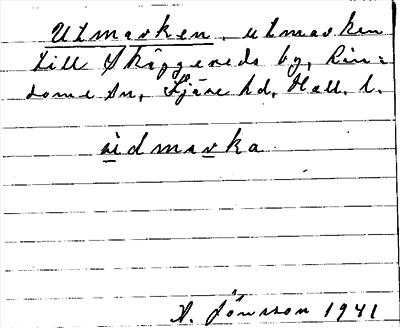 Utmarken, utmarken
till Skäggereds by, Lin=
dome sn, Fjäre hd, Hall. l.
ùdmarka
A. Jönsson 1941